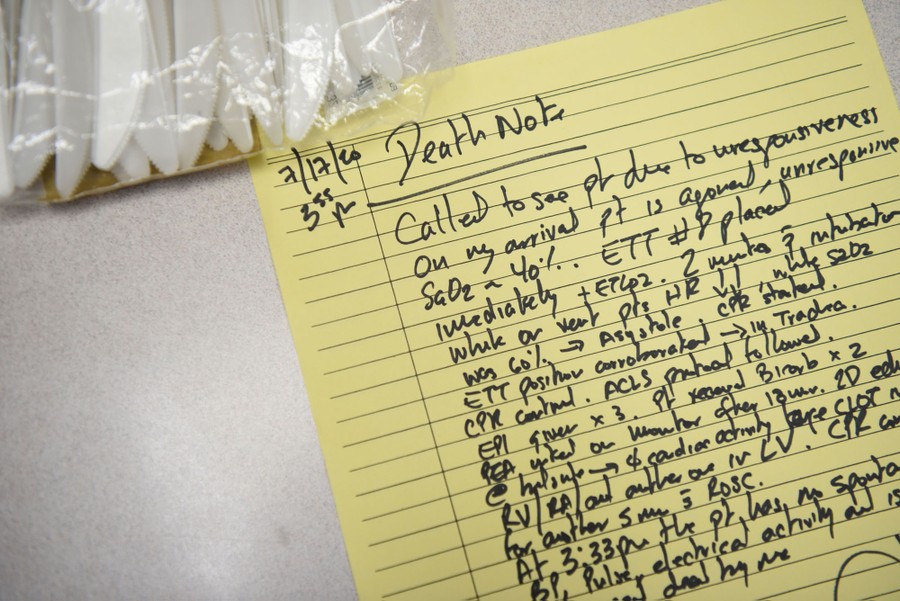 7/17/20
3:55 pm
Death Note
Called to see pt due to unresponsiveness
On my arrival pt is agonal, unresponsive
SaO2 ~ 40%. ETT #8 placed
immediately +ETCO2. 2 minutes intubation
while on vent pts HR ↓↓, while SaO2
was 60% → Asystole. CPR started.
ETT position corroborated → in Trachea.
CPR contind. ACLS protocol followed.
EPI given x 3. pt received Bicarb x 2
PEA noted on monitor after 12 min. 2D
@ bedside → cardiac activity large CLOT
RV/RA/and another one in LV. CPR
for another 5 min ROSC.
At 3:33 pm the pt has no
BP, Pulse, electrical activity and is
by me